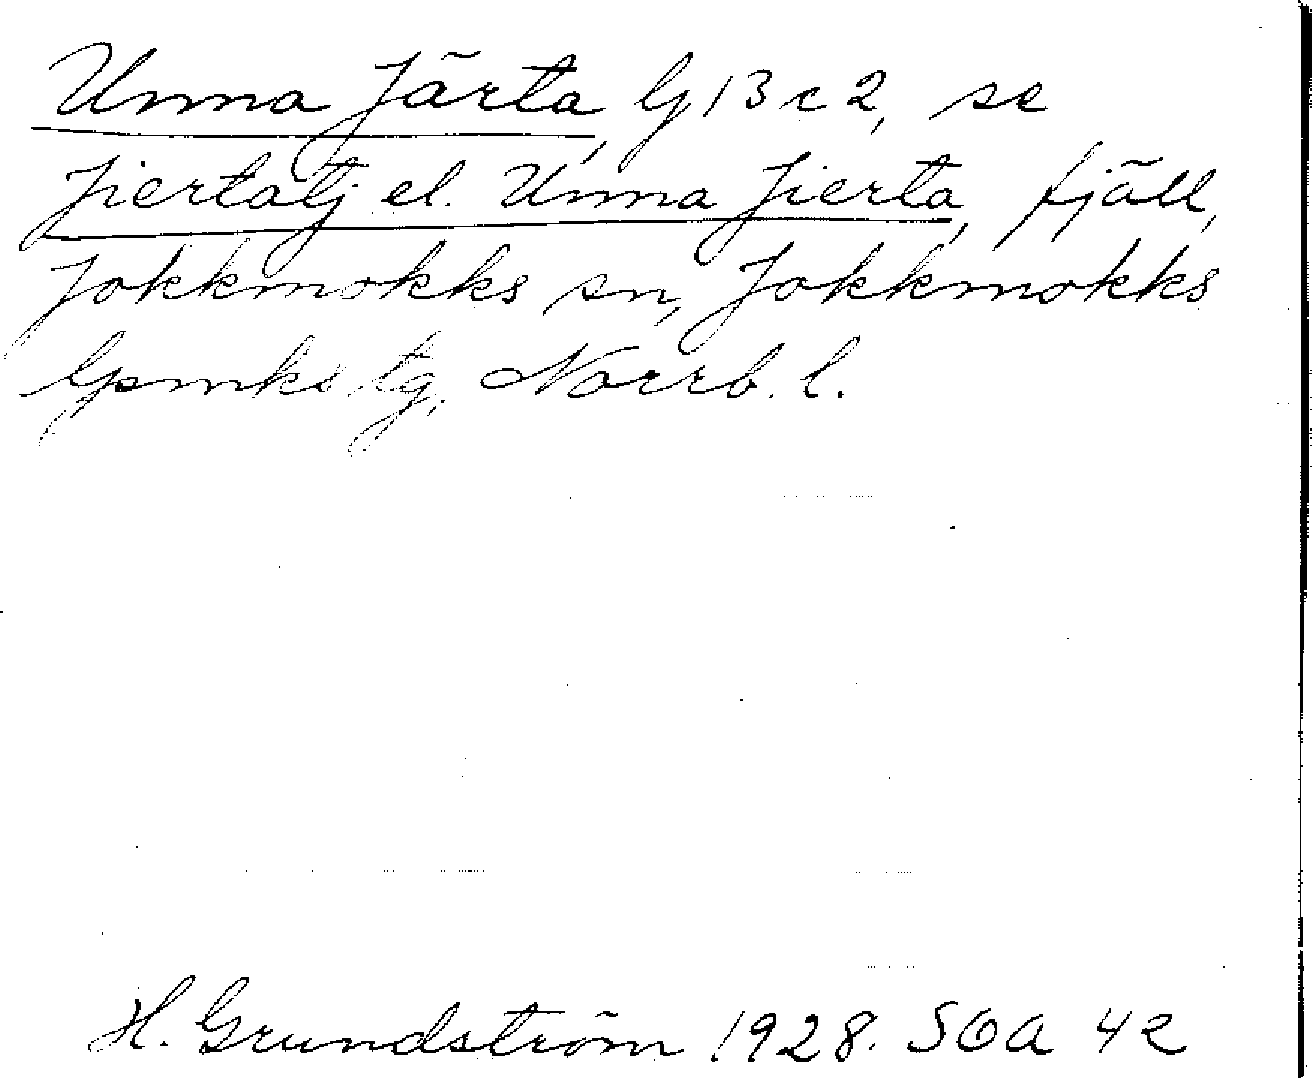 Unna Järta, G 13 c 2, se
Jiertatj el. Unna Jierta, fjäll,
Jokkmokks sn, Jokkmokks
lpmks tg, Norrb. l.
H. Grundström 1928. SOA 42